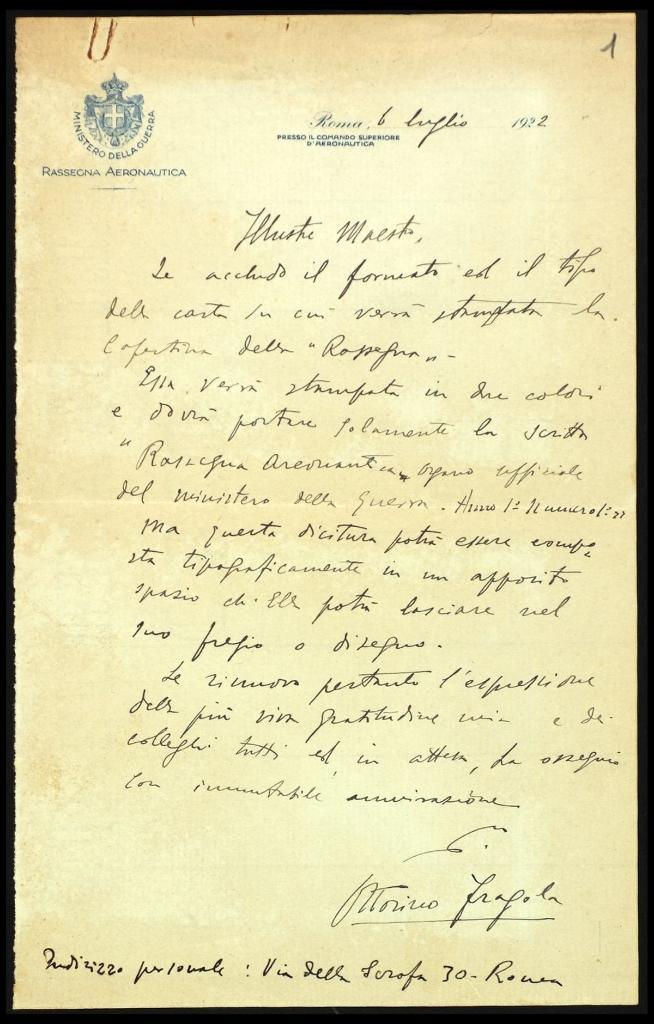 1
MINISTERO DELLA GUERRA
RASSEGNA AERONAUTICA
Roma, 6 luglio 1922
PRESSO IL COMANDO SUPERIORE
D'AERONAUTICA
Illustre Maestro,
Le accludo il formato ed il tipo
della carta su cui verrà stampata la
Copertina della "Rassegna" -
Essa verrà stampata in due colori
e dovrà portare solamente la scritta
"Rassegna Areonautica" organo ufficiale
del ministero della Guerra. Anno 1º Numero 1º
Ma questa dicitura potrà essere compo=
sta tipograficamente in un apposito
spazio ch'Ella potrà lasciare nel
suo fregio o disegno.
Le rinnovo pertanto l'espressione
della più viva gratitudine mia e dei
colleghi tutti ed, in attesa, La ossequio
con immutabile ammirazione
Ottorino Fragola
Indirizzo personale: Via della Scrofa 30 - Roma